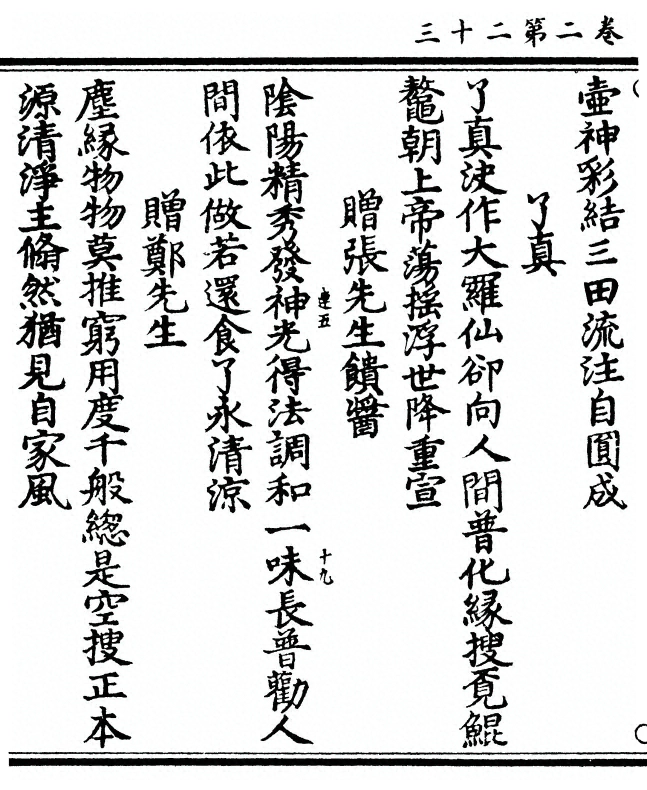 卷二第二十三
壺神彩結三田流注自圓成
了真
了真決作大羅仙卻向人間普化緣搜覔鯤
鼇朝上帝蕩搖浮世降重宣
贈張先生饋醬
陰陽精秀發神光得法調和一味長普勸人
連五
十九
間依此做若還食了永清涼
贈鄭先生
塵緣物物莫推窮用度千般緫是空搜正本
源清淨主翛然猶見自家風